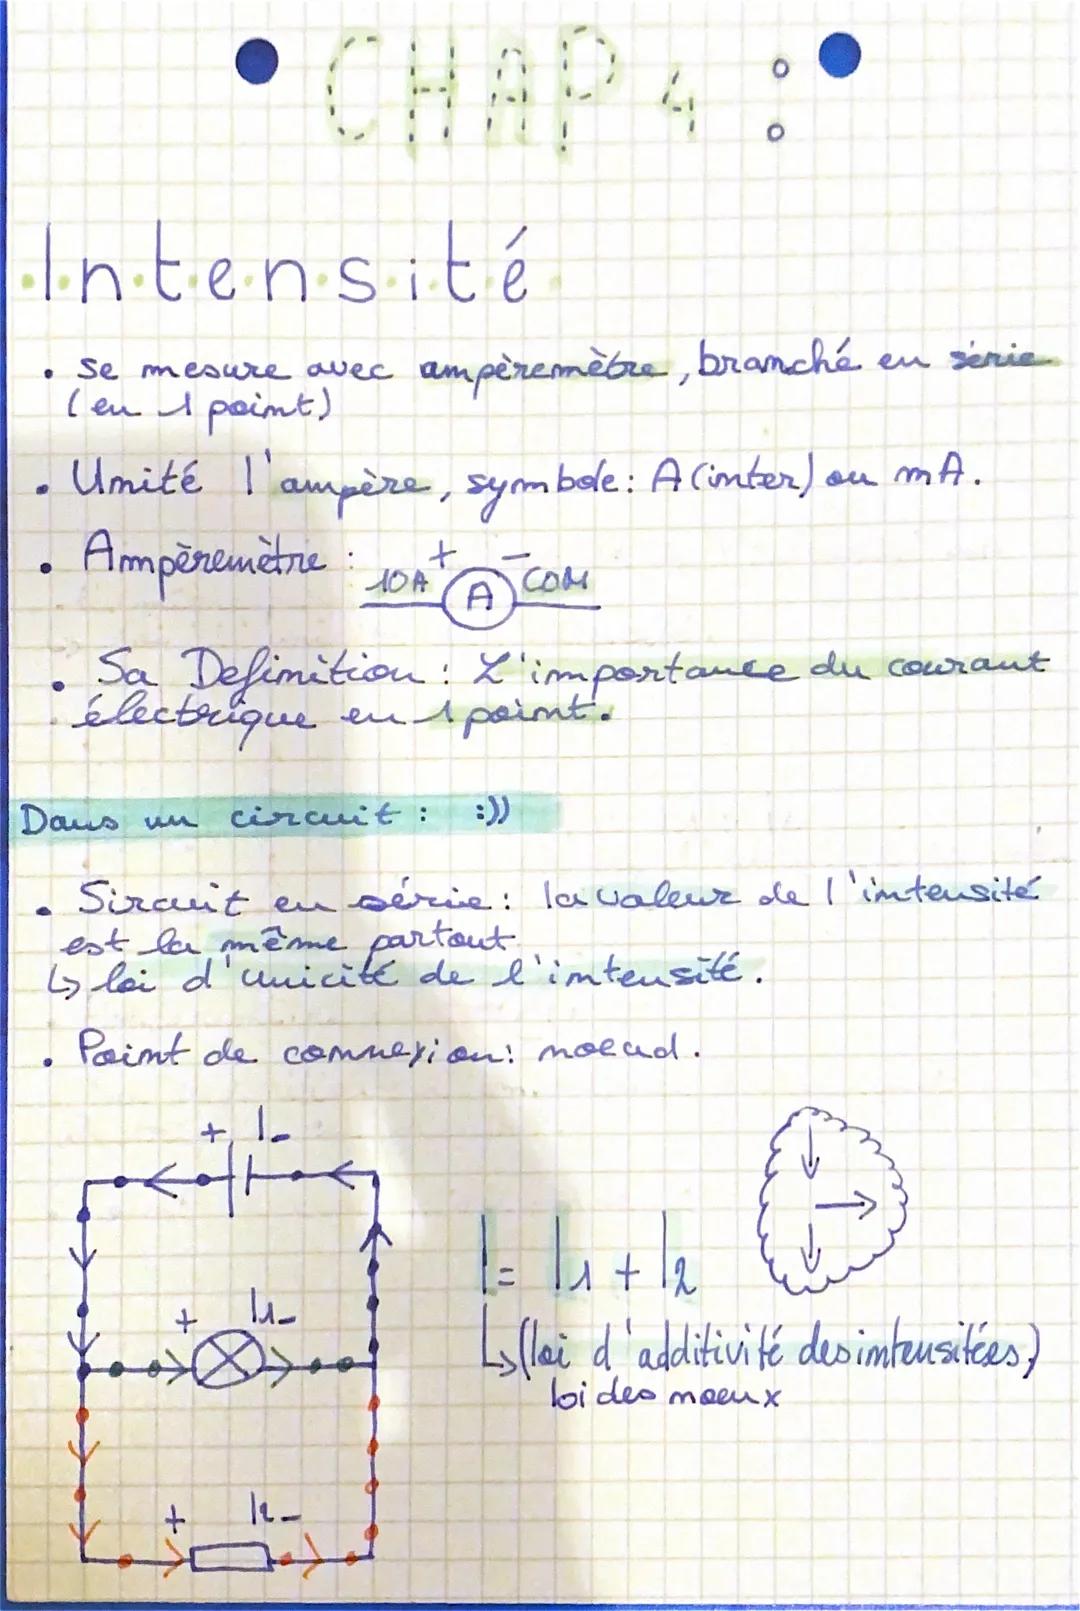 CHAP 4 :
Intensité
• se mesure avec ampèremètre, branché en série
(en 1 point)
• Unité l'ampère, symbole: A (inter) ou mA.
• Ampèremètre :
10A + A - COM
• Sa Definition : L'importance du courant
électrique en 1 point.
Dans un circuit : :))
• Sircuit en série: la valeur de l'intensité
est la même partout
↳ loi d'unicité de l'intensité.
• Point de connexion: noeud.
+ I -
I = I1 + I2
+ I1 -
↳ (loi d'additivité des intensitées)
loi des noeux
+ I2 -